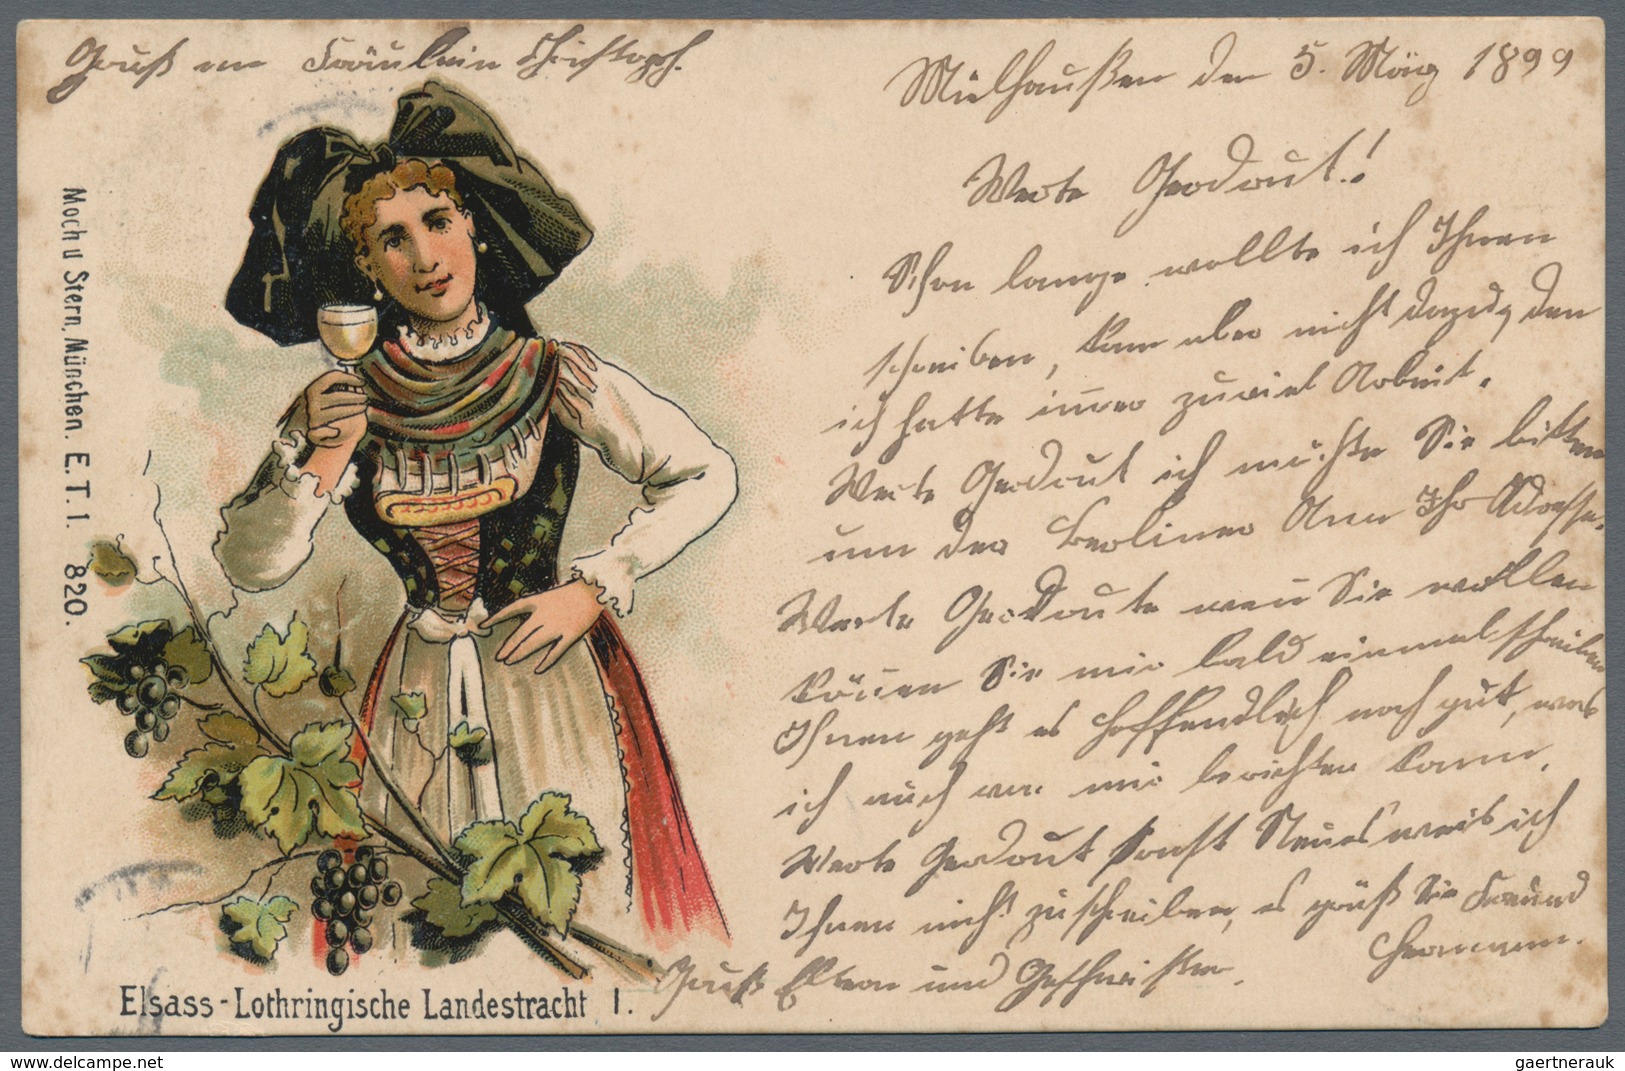 Gruß an Fräulein Christoph.
Mülhaußen den 5. März 1899
Werte Gerdraut!
Schon lange wollte ich Ihnen
schreiben, kam aber nicht dazu, den
ich hatte imer zuviel Arbeit.
Werte Gerdraut ich möchte Sie bitten
um der Berliner Ann Ihr Adresse.
Werte Gerdraute wen Sie wollen
könen Sie mir bald einmal schreiben
Ihnen geht es hoffendlich noch gut, was
ich auch von mir berichten kann.
Werte Gerdraut sonst Neues weis ich
Ihnen nicht zu schreiben, es grüß Sie Freund
Hermann.
Gruß Eltern und Geschwister.
Moch u Stern, München. E. T. 1. 820.
Elsass-Lothringische Landestracht I.
gaertnerauk